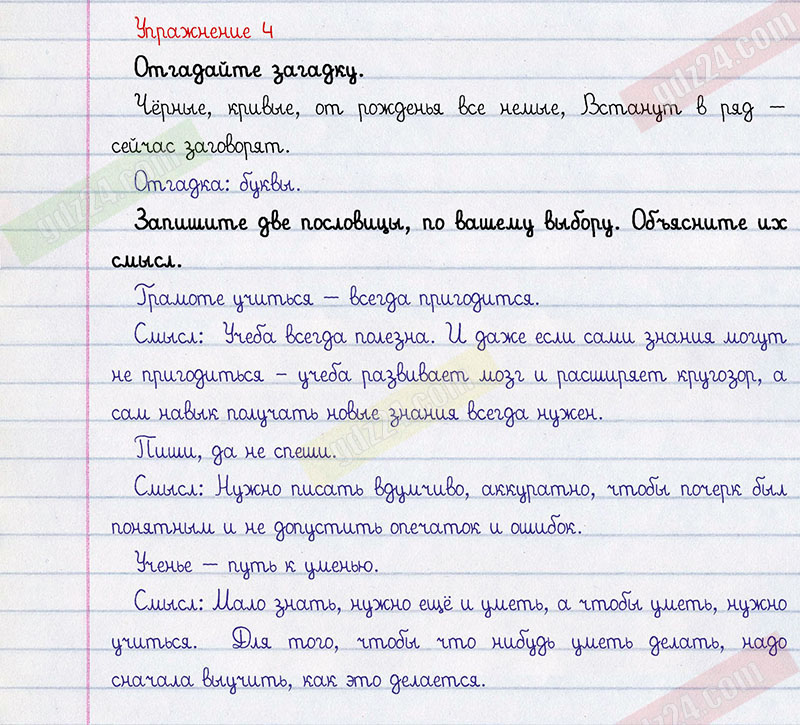 Упражнение 4
Отгадайте загадку.
Чёрные, кривые, от рожденья все немые, Встанут в ряд –
сейчас заговорят.
Отгадка: буквы.
Запишите две пословицы, по вашему выбору. Объясните их
смысл.
Грамоте учиться – всегда пригодится.
Смысл: Учеба всегда полезна. И даже если сами знания могут
не пригодиться – учеба развивает мозг и расширяет кругозор, а
сам навык получать новые знания всегда нужен.
Пиши, да не спеши.
Смысл: Нужно писать вдумчиво, аккуратно, чтобы почерк был
понятным и не допустить опечаток и ошибок.
Ученье – путь к уменью.
Смысл: Мало знать, нужно ещё и уметь, а чтобы уметь, нужно
учиться. Для того, чтобы что нибудь уметь делать, надо
сначала выучить, как это делается.
gdz24.com
gdz24.com
gdz24.com
gdz24.com